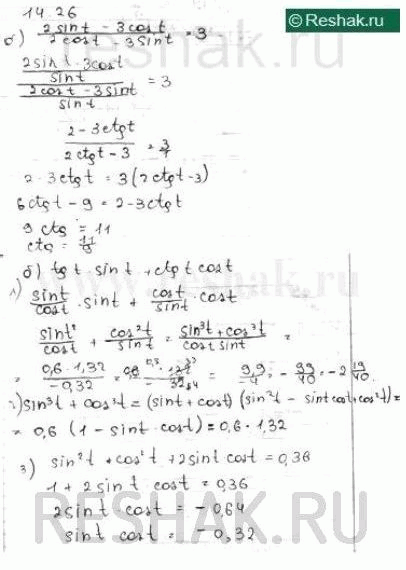 Reshak.ru
14.26
б) (2sint - 3cost)/(2cost - 3sint) = 3
((2sint - 3cost)/sint)/((2cost - 3sint)/sint) = 3
(2 - 3ctgt)/(2ctgt - 3) = 3/1
2 - 3ctgt = 3(2ctgt - 3)
6ctgt - 9 = 2 - 3ctgt
9ctg = 11
ctg = 11/9
б) tgt · sint + ctgt cost
1) sint/cost · sint + cost/sint · cost
sint²/cost + cos²t/sint = (sin³t + cos³t)/(cost sint) =
= (0,6 · 1,32)/(-0,32) = 9,9/4 = - 99/40 = -2 19/40
2) sin³t + cos³t = (sint + cost) (sin²t - sint cost + cos²t) =
= 0,6 (1 - sint cost) = 0,6 · 1,32
3) sin²t + cos²t + 2sint cost = 0,36
1 + 2sint cost = 0,36
2sint · cost = -0,64
sint cost = -0,32
RESHAK.RU